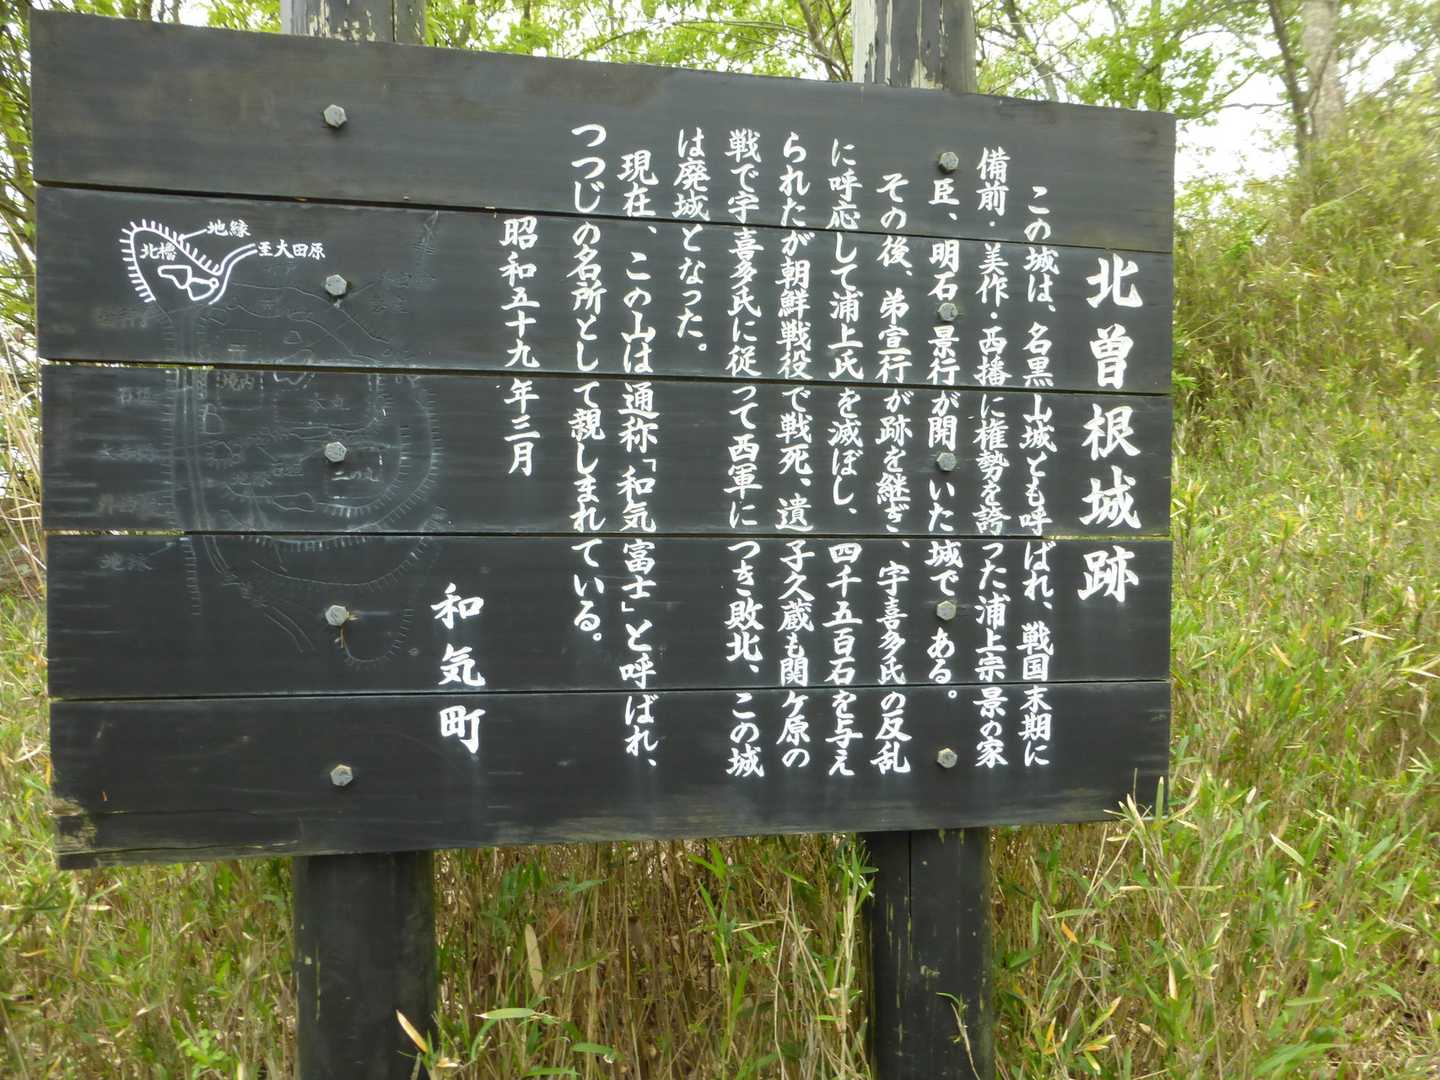 北曽根城跡
この城は、名黒山城とも呼ばれ、戦国末期に
備前・美作・西播に権勢を誇った浦上宗景の家
臣、明石景行が開いた城である。
その後、弟宣行が跡を継ぎ、宇喜多氏の反乱
に呼応して浦上氏を滅ぼし、四千五百石を与え
られたが朝鮮戦役で戦死、遺子久蔵も関ケ原の
戦で宇喜多氏に従って西軍につき敗北、この城
は廃城となった。
現在、この山は通称「和気富士」と呼ばれ、
つつじの名所として親しまれている。
昭和五十九年三月
和気町
地縁
北櫓
至大田原
二の丸